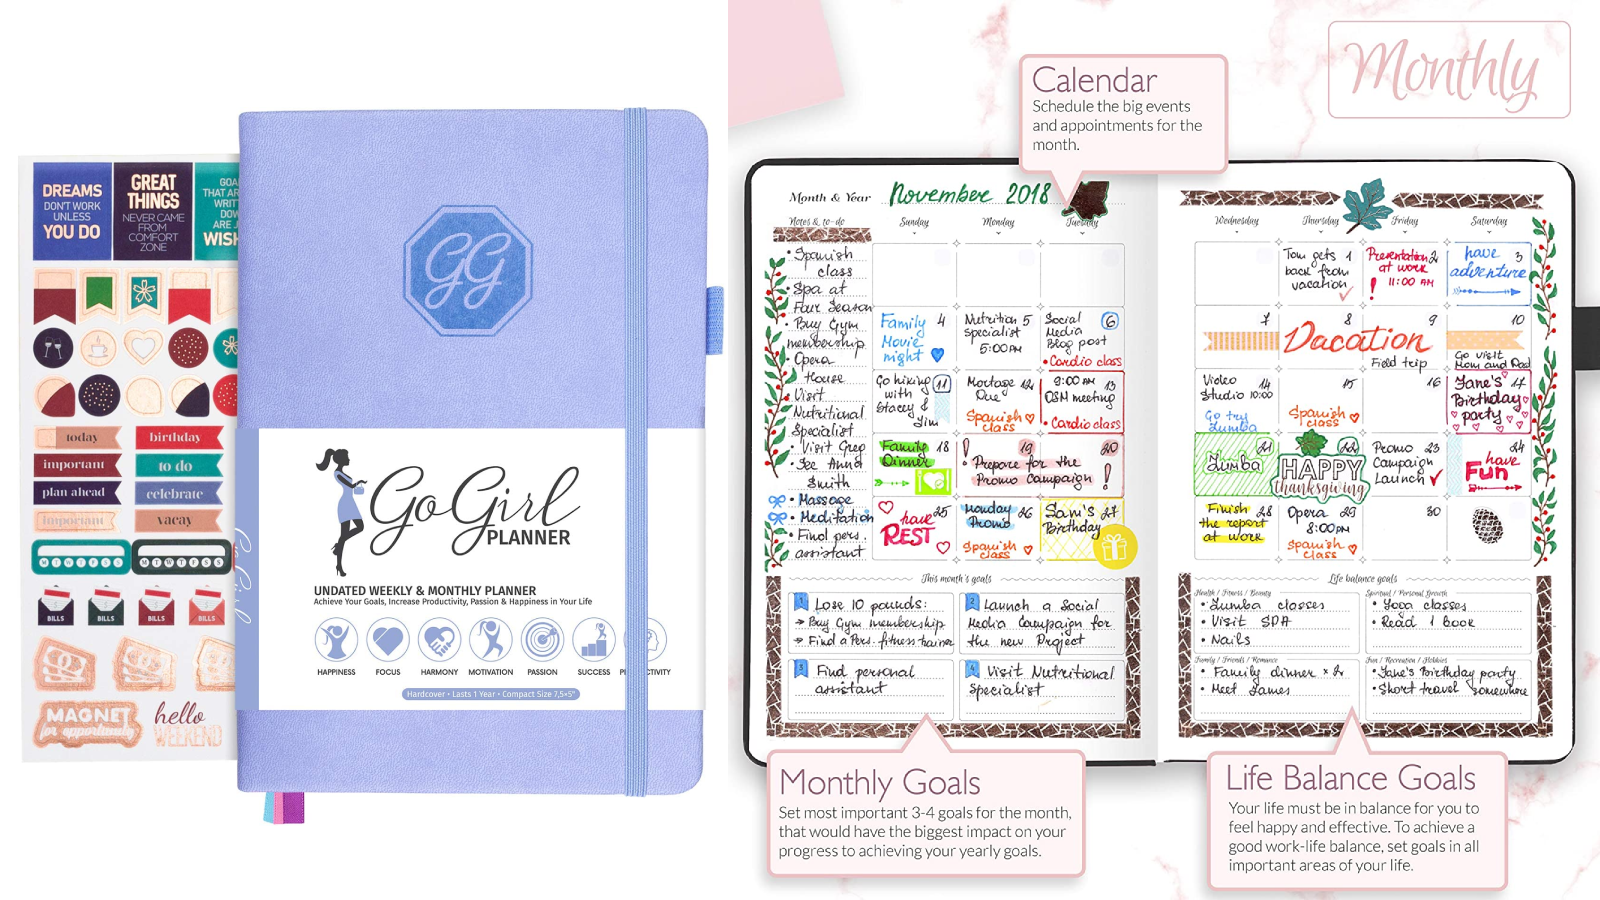 DREAMS
DON'T WORK
UNLESS
YOU DO
GREAT
THINGS
NEVER CAME
FROM
COMFORT
ZONE
GOA
THAT AR
WRIT
DOW
ARE J
WISH
today
birthday
important
to do
plan ahead
celebrate
important
vacay
M T W T F S S
M T W T F S S
BILLS
BILLS
BILLS
BILLS
MAGNET
for opportunity
hello
WEEKEND
GG
Go Girl
PLANNER
UNDATED WEEKLY & MONTHLY PLANNER
Achieve Your Goals, Increase Productivity, Passion & Happiness in Your Life
HAPPINESS
FOCUS
HARMONY
MOTIVATION
PASSION
SUCCESS
Hardcover • Lasts 1 Year • Compact Size 7,5×5"
Monthly
Calendar
Schedule the big events
and appointments for the
month.
Month & Year November 2018
Notes & to-do
Sunday
Monday
Tuesday
Wednesday
Thursday
Friday
Saturday
• Spanish
class
• Spa at
Four Season
• Buy Gym
membership
• Opera
House
• Visit
Nutritional
Specialist
• Visit Greg
• See Anna
Smith
• Massage
• Meditation
• Find pers.
assistant
Tom gets 1
back from
vacation
Presentation 2
at work
! 11:00 AM
have 3
adventure
Family 4
Movie
night
Nutrition 5
Specialist
5:00 PM
Social 6
Media
Blog post
• Cardio class
7
8
Vacation
9
Field trip
10
Go visit
Mom and Dad
Go hiking 11
with
Stacey &
Jim
Mortage 12
Due
Spanish
class
9:00 AM 13
OSM meeting
• Cardio class
Video 14
Studio 10:00
Go try
Zumba
15
Spanish
class
16
Jane's 17
Birthday
party
Family 18
Dinner
! 19
Prepare for the
Promo Campaign
20
!
21
Zumba
22
HAPPY
thanksgiving
Promo 23
Campaign
Launch
24
have
Fun
25
have
REST
Monday 26
Promo
Spanish
class
Sam's 27
Birthday
Finish 28
the report
at work
Opera 29
8:00 PM
Spanish
class
30
This month's goals
1 Lose 10 pounds:
→ Buy Gym membership
→ Find a Pers. fitness trainer
2 Launch a Social
Media Campaign for
the new Project
3 Find personal
assistant
4 Visit Nutritional
Specialist
Life balance goals
Health / Fitness / Beauty
• Zumba classes
• Visit SPA
• Nails
Spiritual / Personal Growth
• Yoga classes
• Read 1 Book
Family / Friends / Romance
• Family dinner × 2
• Meet James
Fun / Recreation / Hobbies
• Jane's Birthday party
• Short travel somewhere
Monthly Goals
Set most important 3-4 goals for the month,
that would have the biggest impact on your
progress to achieving your yearly goals.
Life Balance Goals
Your life must be in balance for you to
feel happy and effective. To achieve a
good work-life balance, set goals in all
important areas of your life.